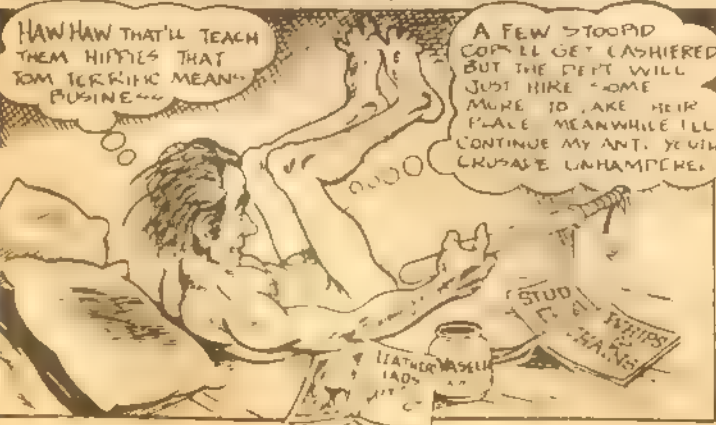 HAW HAW THAT'LL TEACH
THEM HIPPIES THAT
TOM TERRIFIC MEANS
BUSINESS
A FEW STOOPID
COPS'LL GET CASHIERED
BUT THE DEPT WILL
JUST HIRE SOME
MORE TO TAKE THEIR
PLACE MEANWHILE I'LL
CONTINUE MY ANTI YOUTH
CRUSADE UNHAMPERED
STUD
WHIPS
CHAINS
LEATHER
LADS
VASELINE